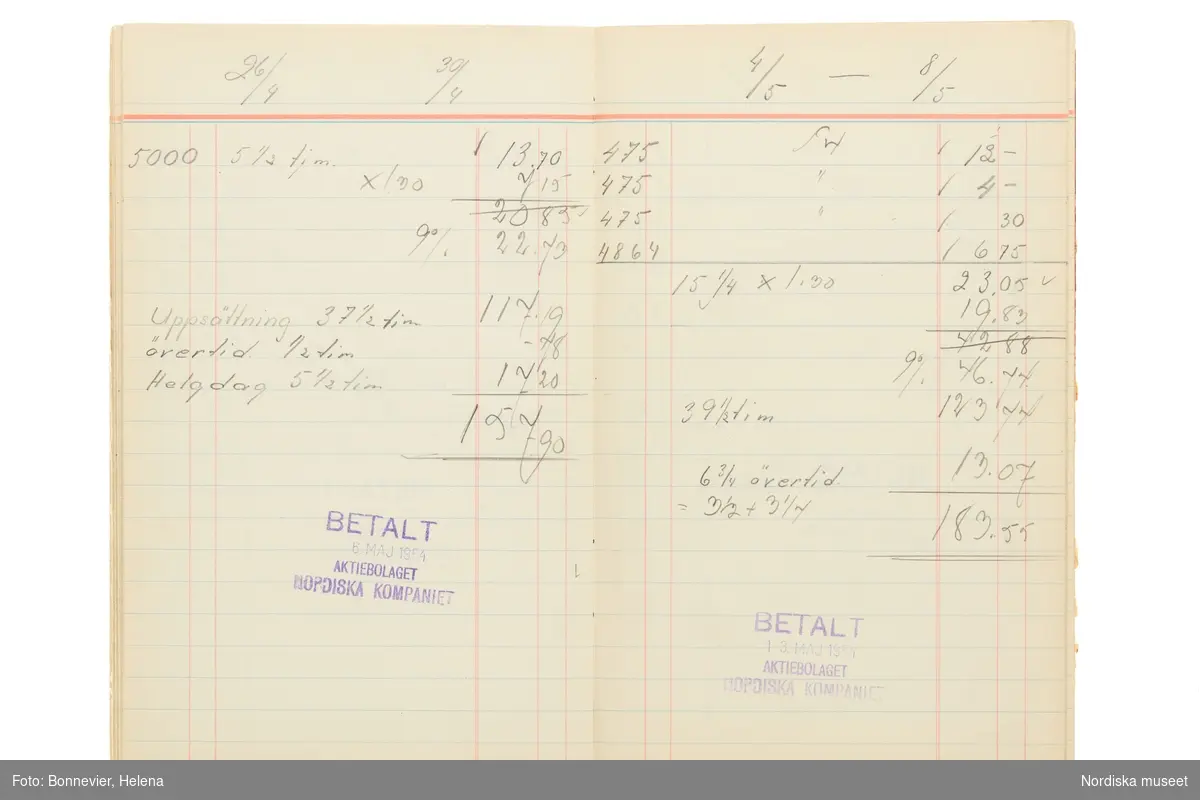 26/4 30/4
5000 5 1/2 tim. 1 13.70
X 1.30 7 15
20 85
9% 22.73
Uppsättning 37 1/2 tim 117.19
övertid 1/2 tim -78
Helgdag 5 1/2 tim 17 20
157.90
BETALT
6 MAJ 1954
AKTIEBOLAGET
NORDISKA KOMPANIET
4/5 — 8/5
475 1 12 -
475 " 1 4 -
475 " 1 30
4864 1 6 75
15 1/4 X 1.30 23.05 ✓
19.83
42 88
9% 46.74
39 1/2 tim 123 74
6 3/4 övertid. 13.07
= 3 1/2 + 3 1/4
183.55
BETALT
13. MAJ 1954
AKTIEBOLAGET
NORDISKA KOMPANIET
Foto: Bonnevier, Helena
Nordiska museet